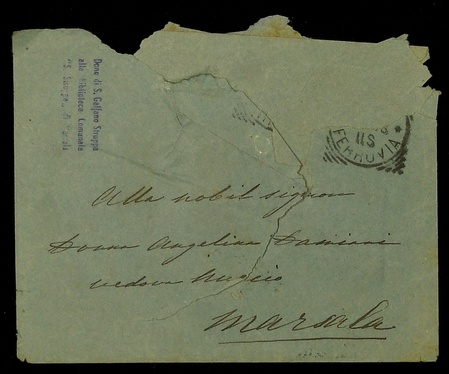 Dono di S. Galfano Struppa
alla Biblioteca Comunale
"S.
118
FERROVIA
Alla nobil signora
Donna Angelina Damiani
vedova
Marsala